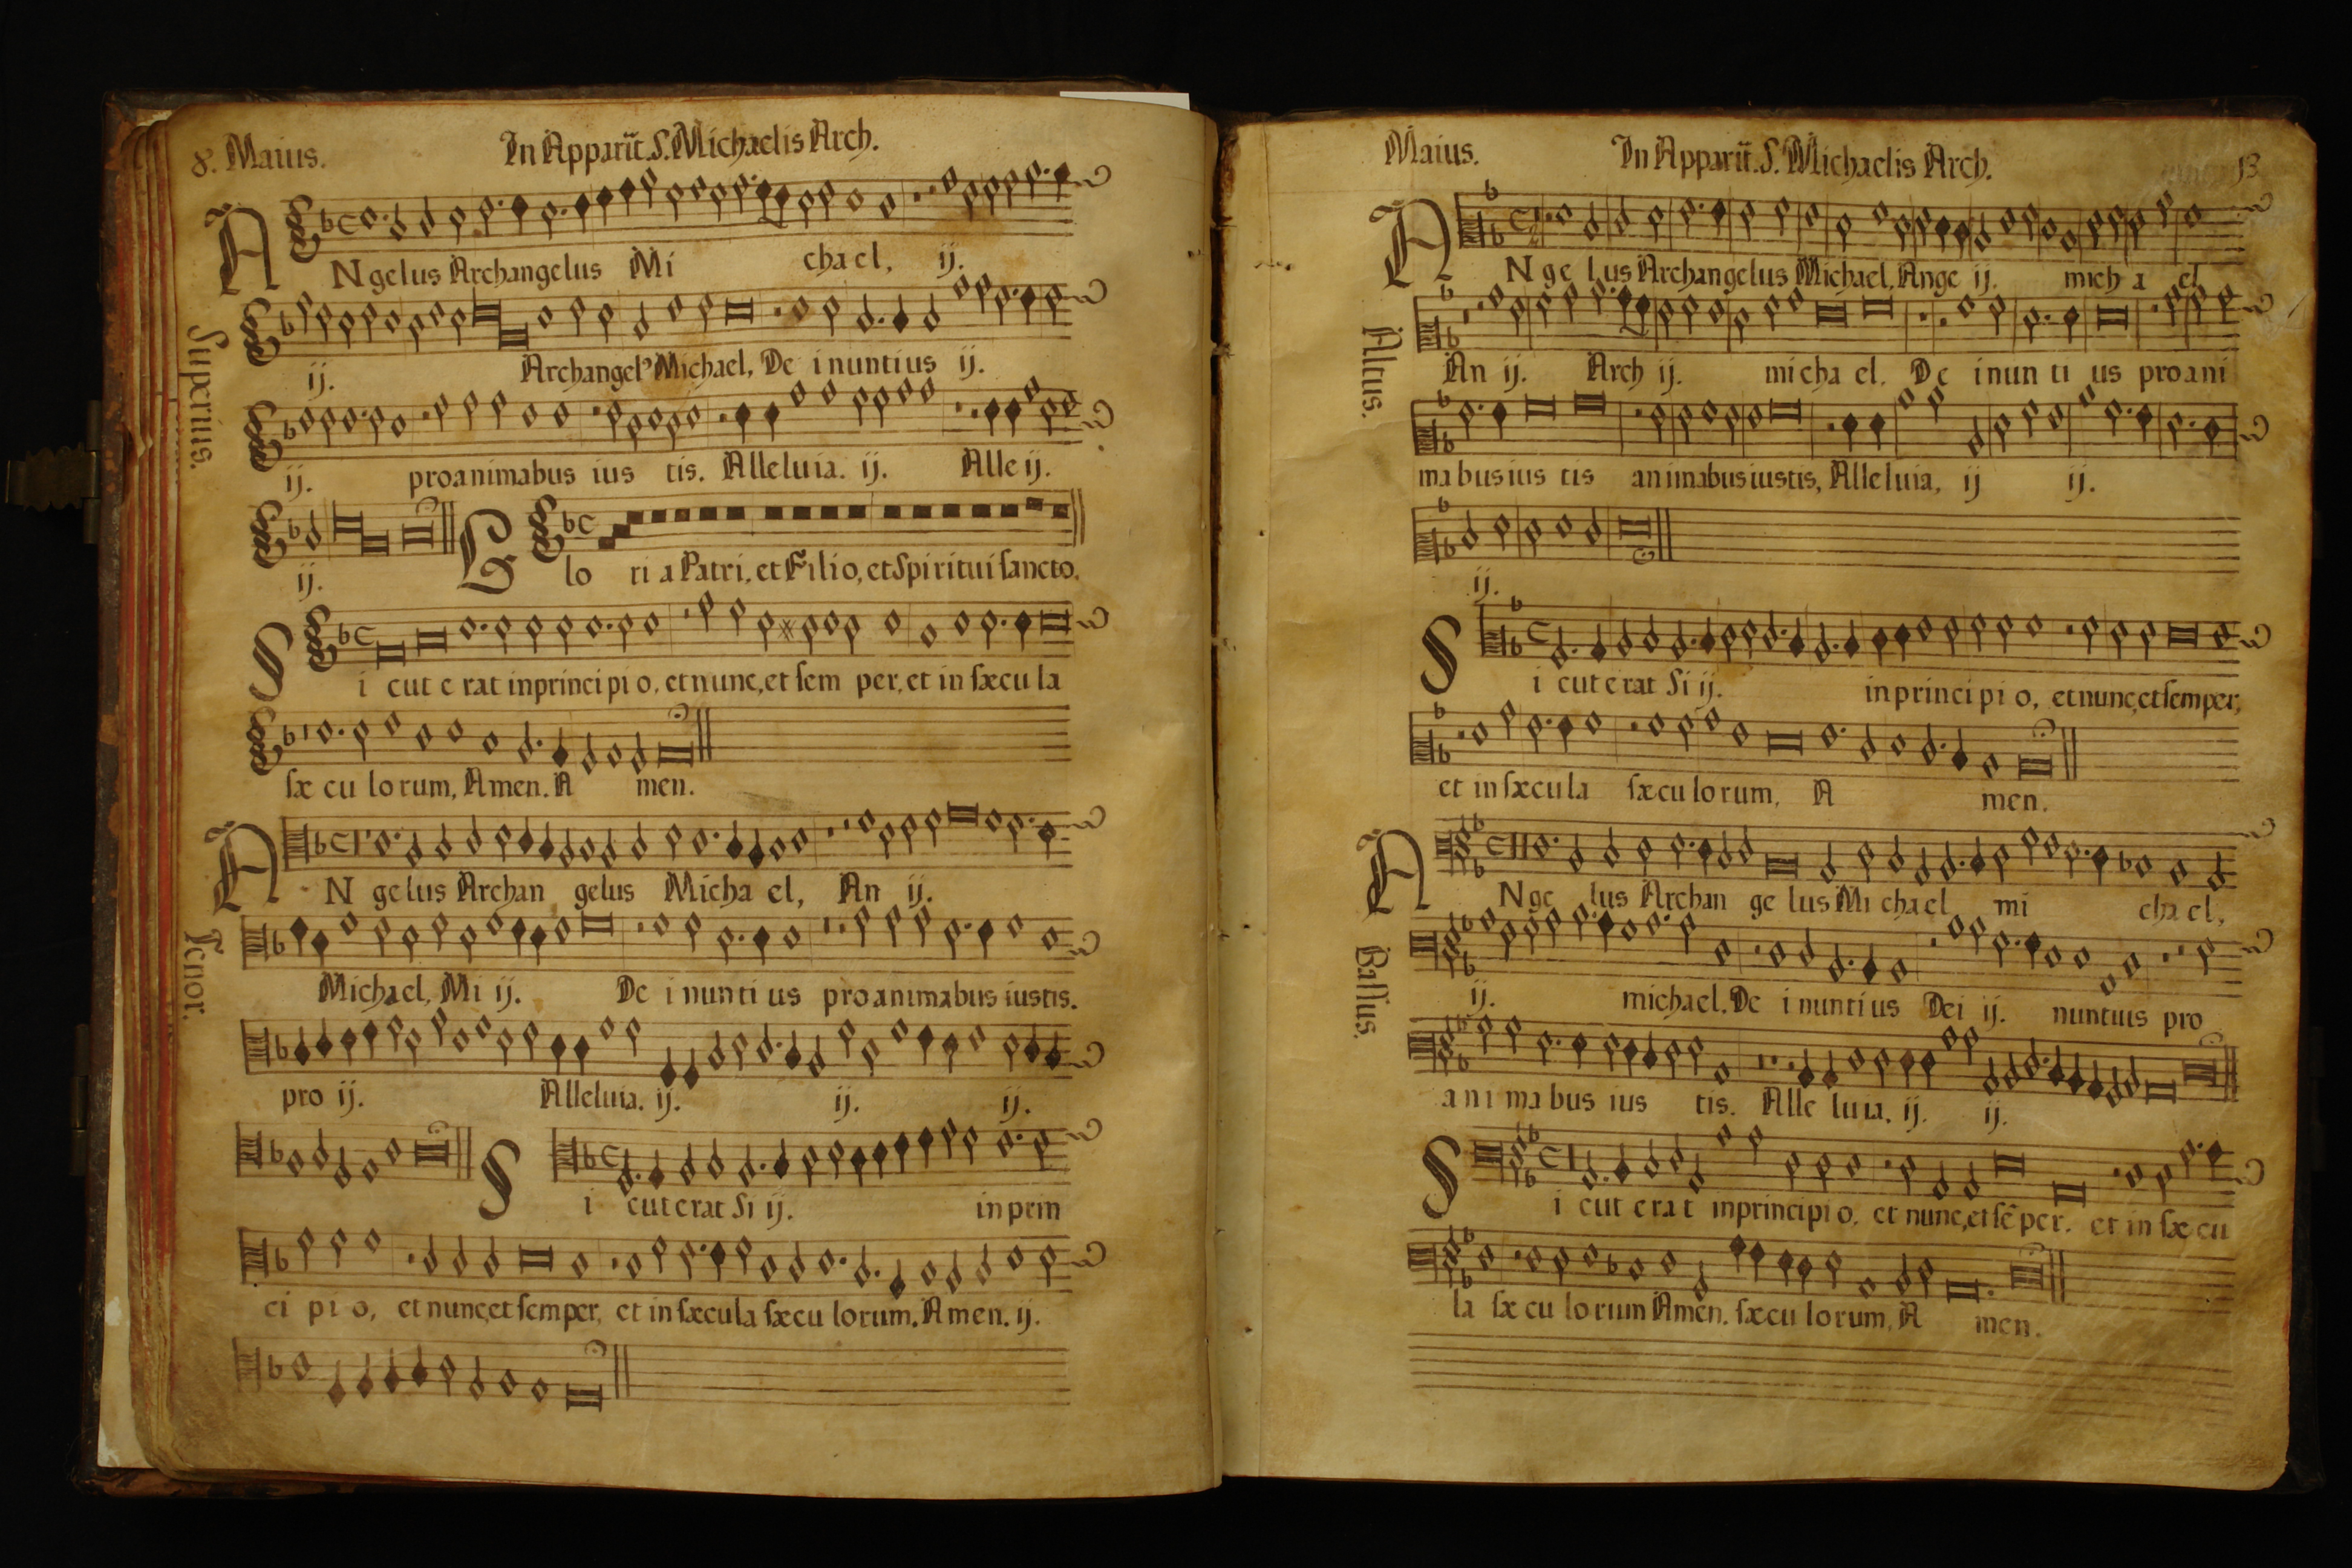 8. Maius. In Apparit. S. Michaelis Arch.
Superius.
ANgelus Archangelus Mi chael, ij.
ij. Archangel' Michael, De i nuntius ij.
ij. pro animabus ius tis. Alleluia. ij. Alle ij.
ij. Glo ri a Patri, et Filio, et Spiritui sancto.
Si cut e rat in principi o, et nunc, et sem per, et in sæcu la
sæ cu lo rum, Amen. A men.
Tenor.
AN gelus Archan gelus Micha el, An ij.
Michael, Mi ij. De i nunti us pro animabus iustis.
pro ij. Alleluia. ij. ij. ij.
Si cut erat Si ij. in prin
ci pi o, et nunc, et semper, et in sæcula sæcu lorum. Amen. ij.
Maius. In Apparit. S. Michaelis Arch. 13
Altus.
AN ge lus Archangelus Michael, Ange ij. mich a el
An ij. Arch ij. micha el. De i nun ti us pro ani
mabus ius tis animabus iustis, Alleluia, ij ij.
ij.
Si cut erat Si ij. in princi pi o, et nunc, et semper,
et in sæcula sæcu lo rum, A men.
Bassus.
ANge lus Archan ge lus Mi chael mi cha el,
ij. michael. De i nunti us Dei ij. nuntius pro
ani mabus ius tis. Alle luia. ij. ij.
Si cut erat in principi o, et nunc, et sẽ per. et in sæ cu
la sæ cu lo rum Amen. sæcu lorum. A men.